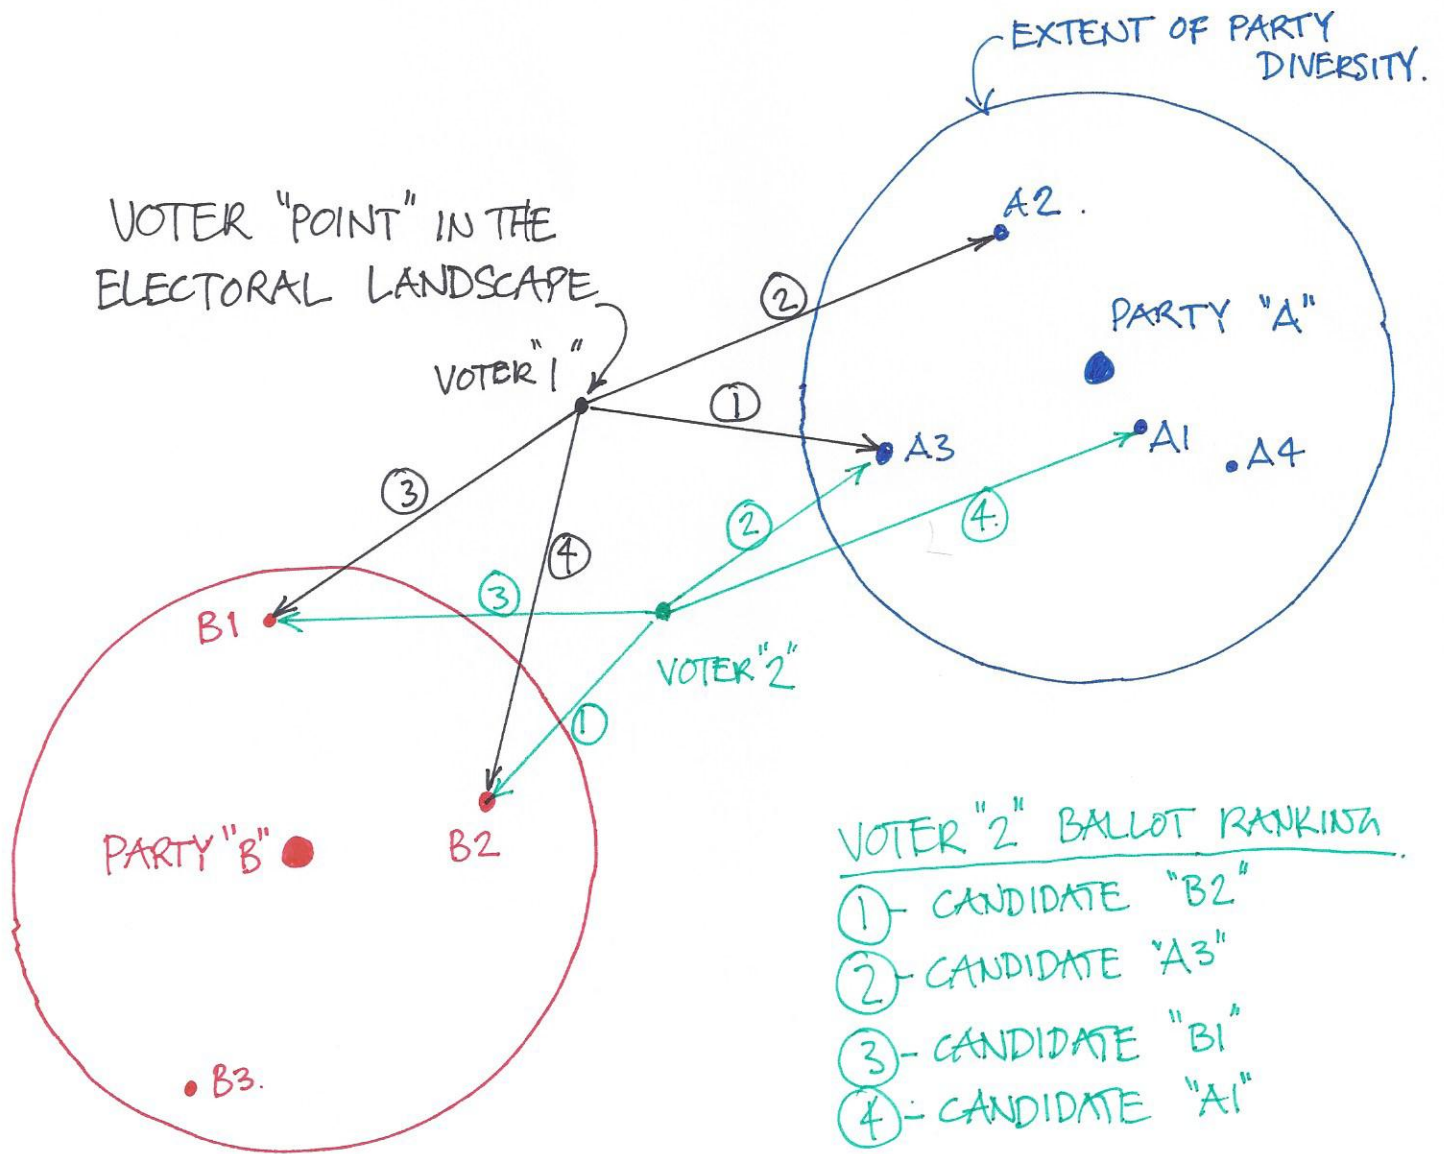 EXTENT OF PARTY
DIVERSITY.
A2.
VOTER "POINT" IN THE
ELECTORAL LANDSCAPE
2
PARTY "A"
VOTER "1"
1
A3
A1
A4
3
2
4.
4
3
B1
VOTER "2"
1
PARTY "B"
B2
B3.
VOTER "2" BALLOT RANKING.
1 - CANDIDATE "B2"
2 - CANDIDATE "A3"
3 - CANDIDATE "B1"
4 - CANDIDATE "A1"